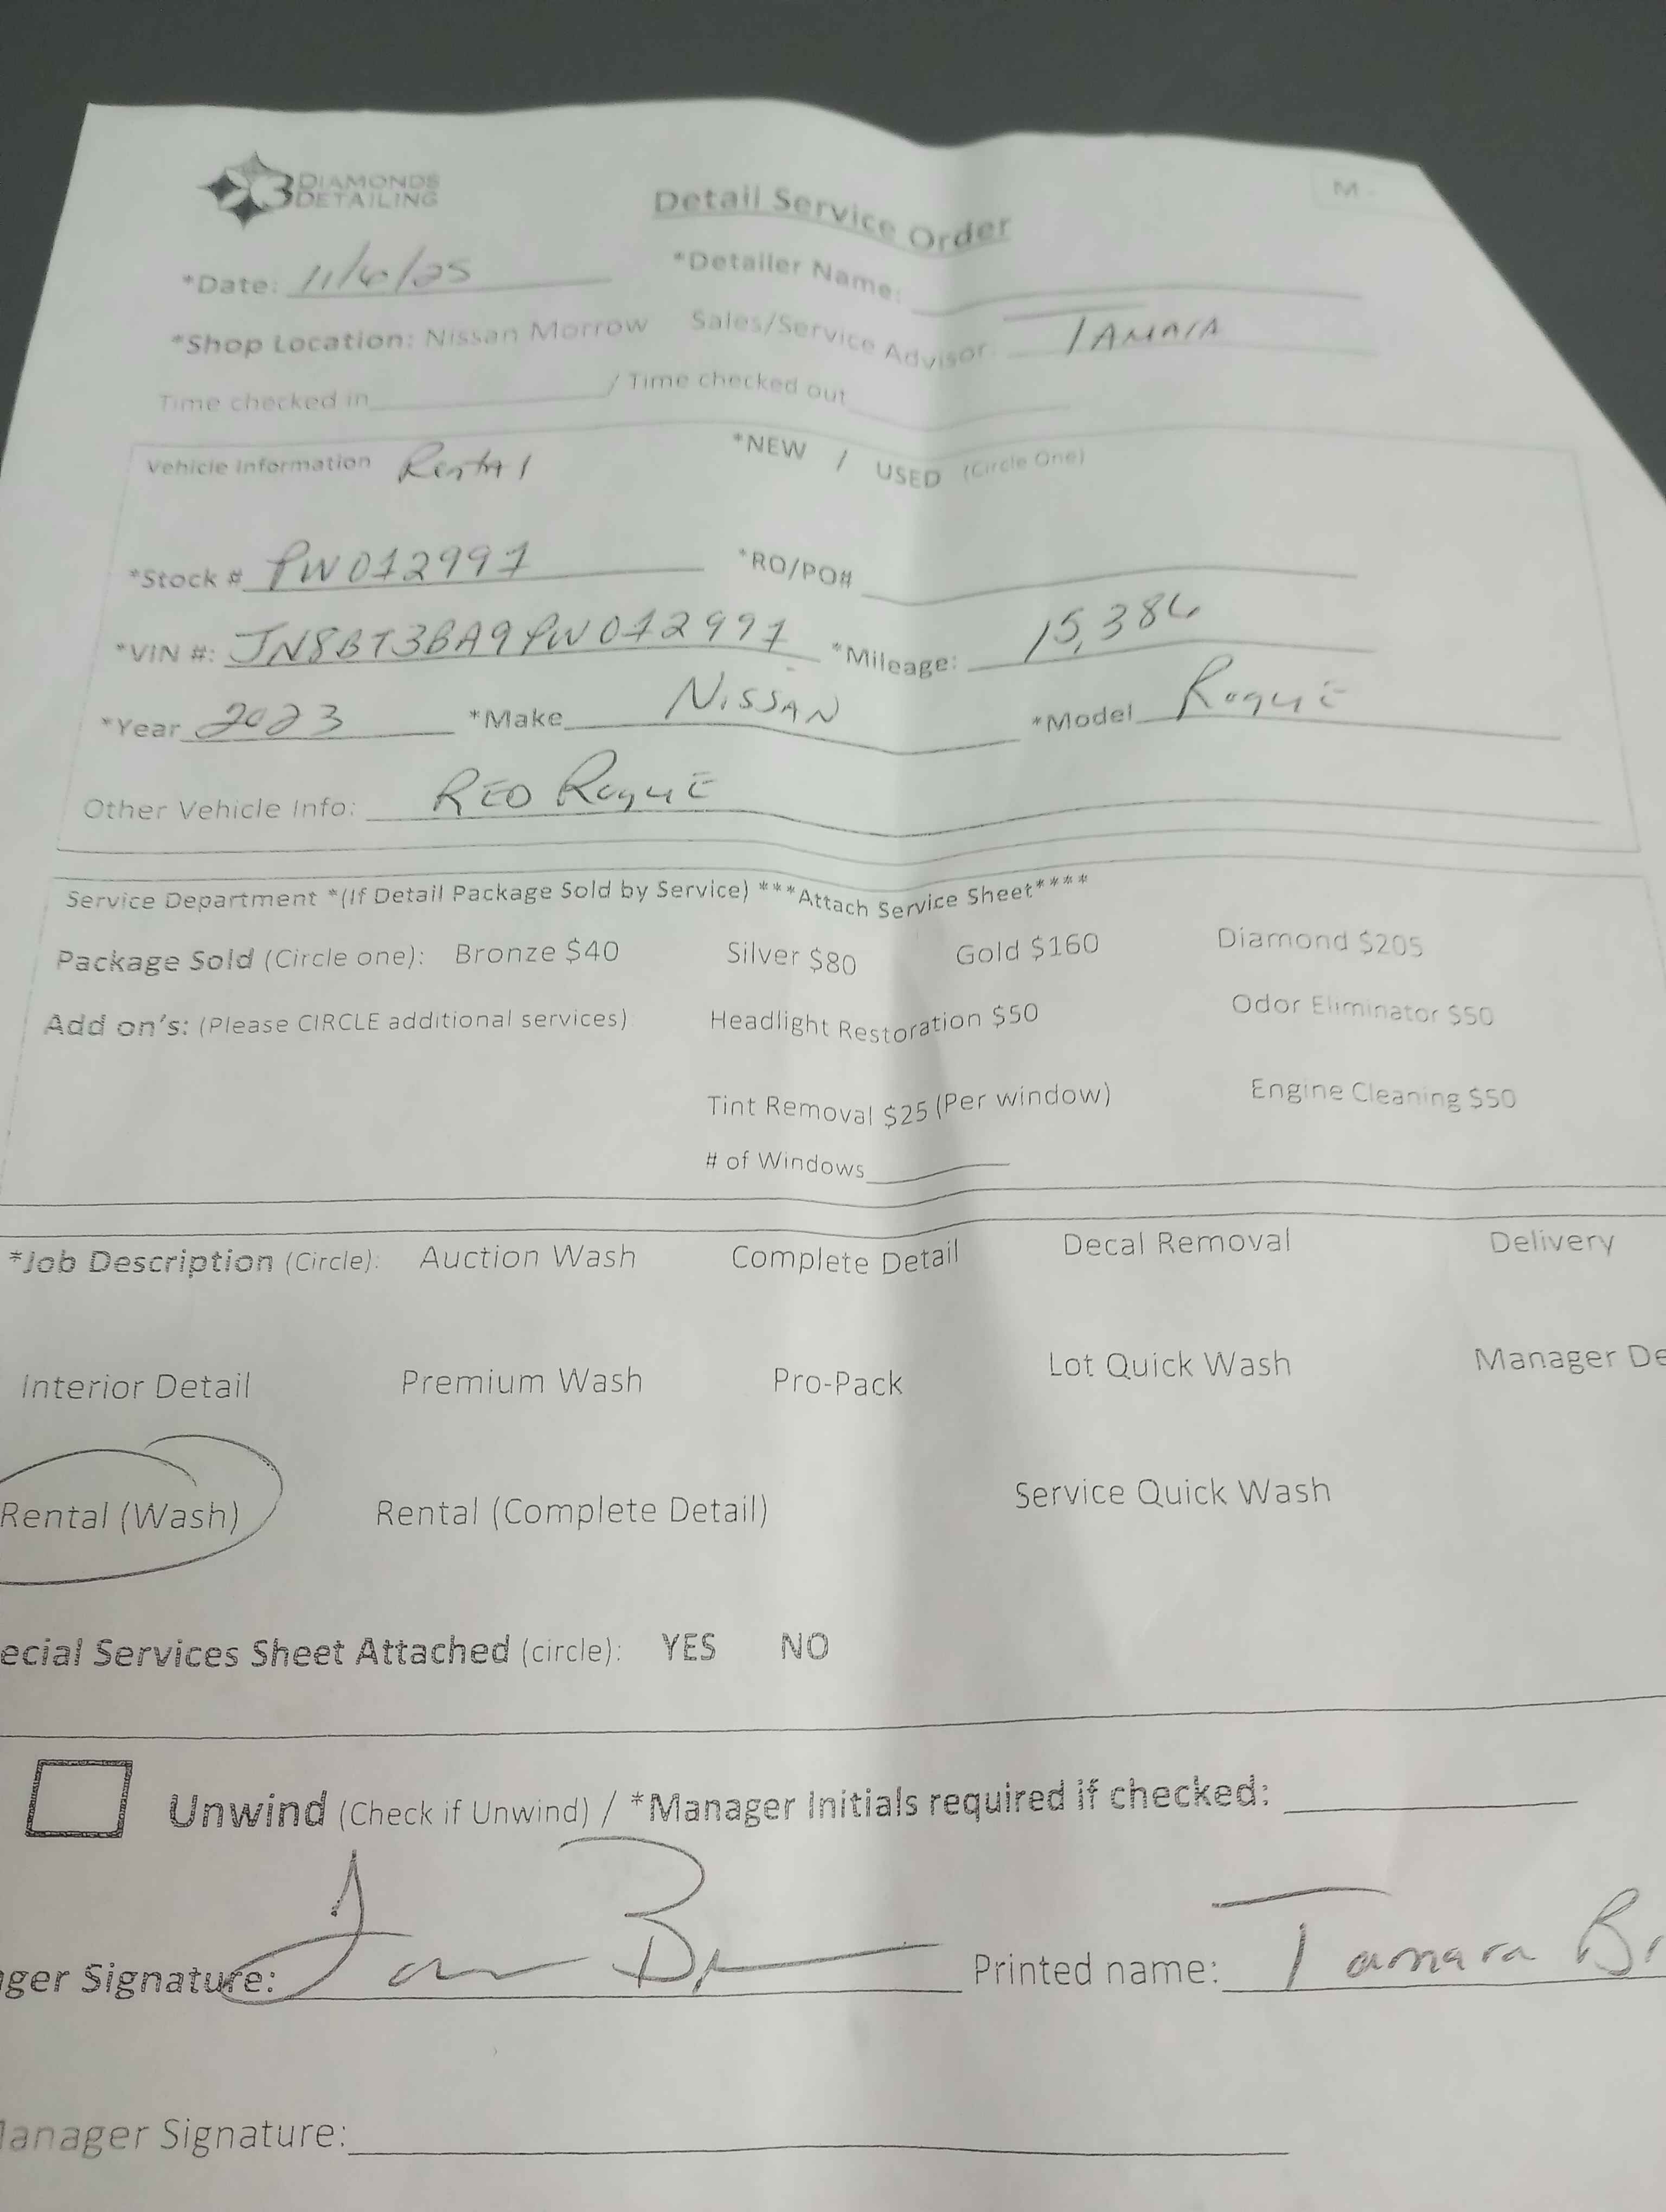 3 DIAMONDS DETAILING
Detail Service Order
M -
*Date: 11/6/25 *Detailer Name:
*Shop Location: Nissan Morrow Sales/Service Advisor: TAMARA
Time checked in / Time checked out
Vehicle Information Rental *NEW / USED (Circle One)
*Stock # PW012991 *RO/PO#
*VIN #: JN8BT3BA9PW012991 *Mileage: 15,386
*Year 2023 *Make NISSAN *Model RoguE
Other Vehicle Info: RED RoguE
Service Department *(If Detail Package Sold by Service) ***Attach Service Sheet****
Package Sold (Circle one): Bronze $40 Silver $80 Gold $160 Diamond $205
Add on's: (Please CIRCLE additional services) Headlight Restoration $50 Odor Eliminator $50
Tint Removal $25 (Per window) Engine Cleaning $50
# of Windows
*Job Description (Circle): Auction Wash Complete Detail Decal Removal Delivery
Interior Detail Premium Wash Pro-Pack Lot Quick Wash Manager De
Rental (Wash) Rental (Complete Detail) Service Quick Wash
ecial Services Sheet Attached (circle): YES NO
Unwind (Check if Unwind) / *Manager Initials required if checked:
ger Signature: Printed name: Tamara Br
anager Signature: